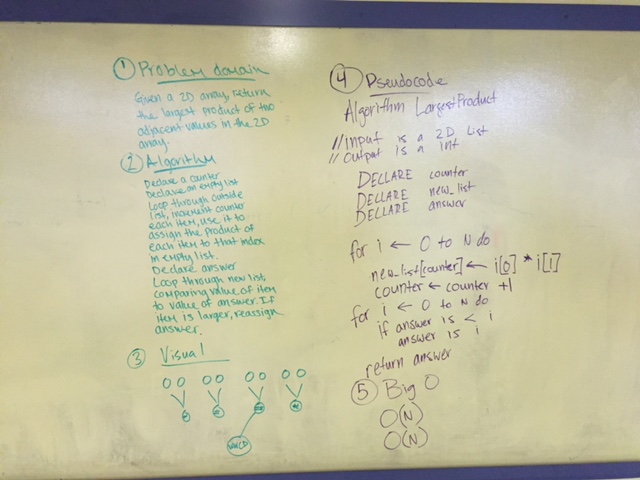 ① Problem domain
Given a 2D array, return
the largest product of two
adjacent values in the 2D
array.
② Algorithm
Declare a counter
Declare an empty list
Loop through outside
list, increment counter
each item, use it to
assign the product of
each item to that index
in empty list.
Declare answer
Loop through new list,
comparing value of item
to value of answer. If
item is larger, reassign
answer.
③ Visual
④ Pseudocode
Algorithm LargestProduct
// input is a 2D list
// output is a int
DECLARE counter
DECLARE new_list
DECLARE answer
for i ← 0 to N do
new_list[counter] ← i[0] * i[1]
counter ← counter +1
for i ← 0 to N do
if answer is < i
answer is i
return answer
⑤ Big O
O(N)
O(N)